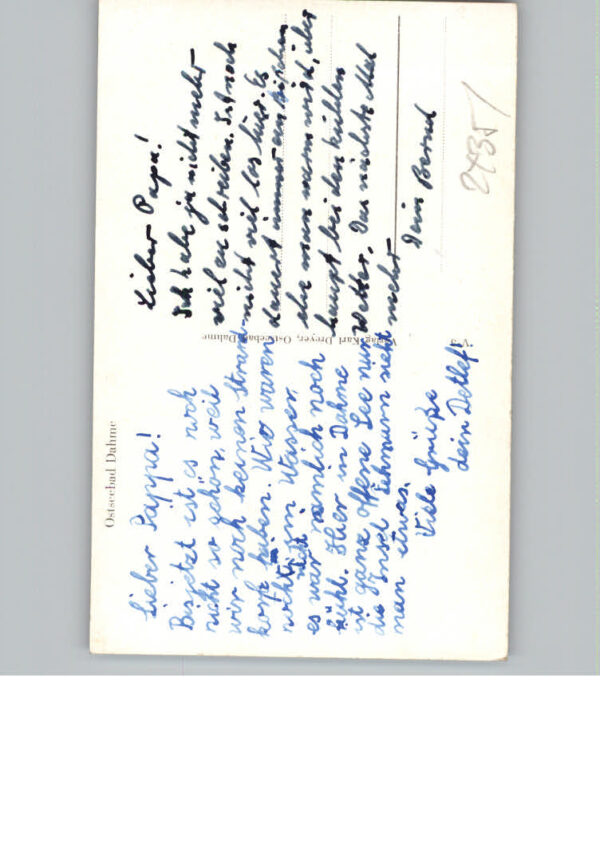 Ostseebad Dahme
Lieber Pappa!
Bisjetzt ist es noch
nicht so schön, weil
wir noch keinen Strand-
korb haben. Wir waren
noch nicht im Wasser
es war nämlich noch
kühl. Hier in Dahme
ist ganz offene See nur
die Insel Fehmann sieht
man etwas.
Viele Grüße
dein Detlef!
Lieber Papa!
Ich habe ja nicht mehr
viel zu schreiben. Ist noch
nicht viel los hier. Es
dauert immer ein bischen
ehe man warm wird, über
haupt bei dem kühlen
Wetter. Das nächste Mal
mehr
Dein Bernd
Verlag: Karl Dreyer, Ostseebad Dahme